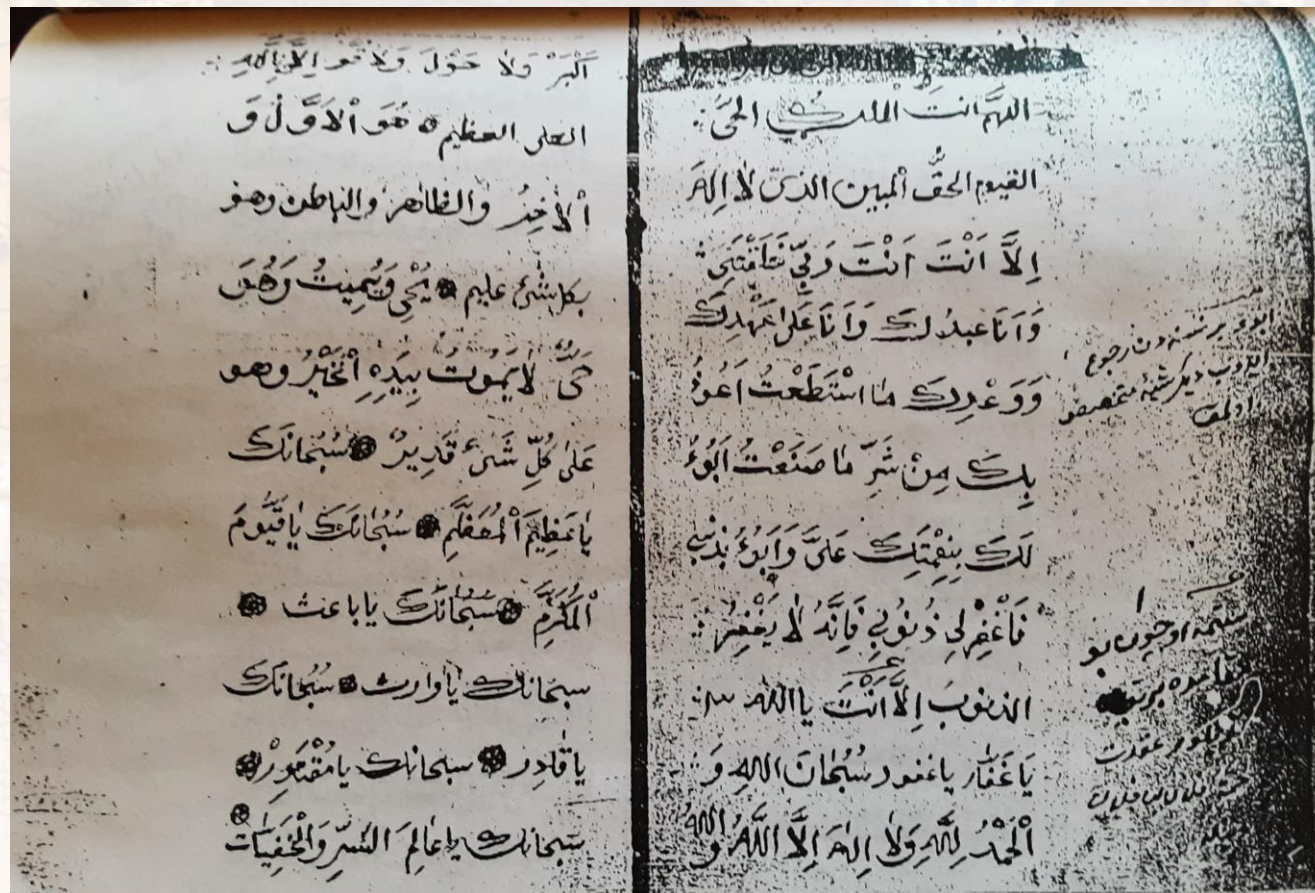 اللهم انت الملك الحىّ
القيوم الحقُّ المبين الذى لا اله
اِلاَّ اَنْتَ اَنْتَ رَبِّى خَلَقْتَنِى
وَاَنَا عَبدُكَ وَاَنَا عَلٰى عَهْدِكَ
وَوَعْدِكَ مَا اسْتَطَعْتُ اَعُوذُ
بِكَ مِنْ شَرِّ مَا صَنَعْتُ اَبُوءُ
لَكَ بِنِعْمَتِكَ عَلَىَّ وَاَبُوءُ بِذَنْبِى
فَاغْفِرْلِى ذُنُوبِى فَاِنَّهُ لَا يَغْفِرُ
الذنوبَ اِلاَّ اَنْتَ يا الله
يَا غَفَّار يا غفور سُبْحَانَ اللهِ وَ
اَلْحَمْدُ لِلّٰهِ وَلَا اِلٰهَ اِلاَّ اللّٰهُ وَاللهُ
ابوء بر نسنه دن رجوع
ايدوب ديكر شيئه متخصص
اولمق
اَكْبَرْ وَلَا حَوْلَ وَلَا قوة اِلاَّ بِاللهِ
العلى العظيم هُوَ اْلاَوَّلُ وَ
اْلاٰخِرُ والظاهر والباطن وهو
بكل شئ عليم يُحْيِى وَيُمِيتُ وَهُوَ
حَىٌّ لَا يَمُوتُ بِيَدِهِ الْخَيْرُ وهو
عَلٰى كُلِّ شَىْءٍ قَدِيرٌ سُبْحَانَكَ
يَا عَظِيمَ اْلمُعَظَّمِ سُبْحَانَكَ يَا قَيُّومَ
اْلمُكَرَّمِ سُبْحَانَكَ يا باعث
سبحانك يا وارث سُبْحَانَكَ
يا قَادِر سبحانك يا مُقْتَدِرْ
سبحانك يا عَالِمَ السِّرِّ وَالْخَفِيَّاتْ